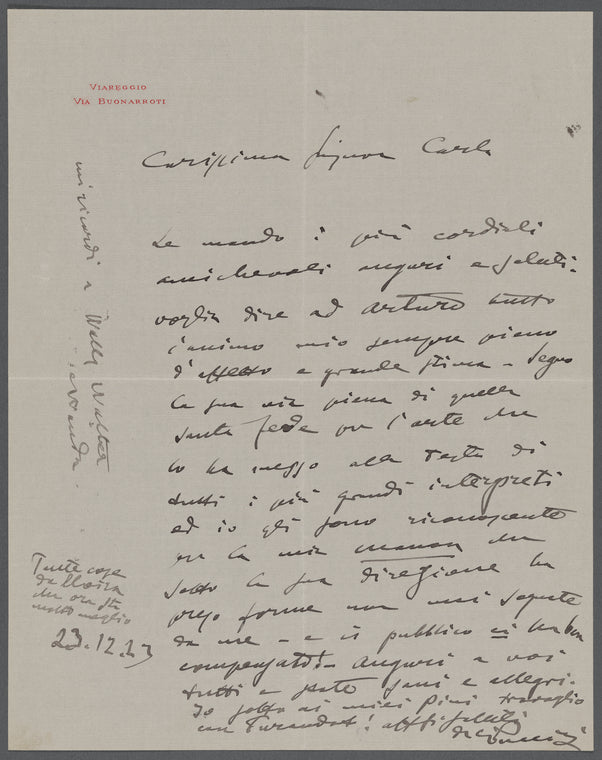 VIAREGGIO
VIA BUONARROTI
Carissima Signora Carla
Le mando i più cordiali
amichevoli auguri e saluti.
voglia dire ad Arturo tutto
l'animo mio sempre pieno
d'affetto e grande stima - Seguo
la sua via piena di quella
santa fede per l'arte che
lo ha messo alla testa di
tutti i più grandi interpreti
ed io gli sono riconoscente
per la mia Manon che
sotto la sua direzione ha
preso forme non mai sapute
da me - e il pubblico vi ha ben
compensati - auguri a voi
tutti e state sani e allegri.
Io sotto ai miei pini travaglio
con Turandot! aff saluti
di Puccini
Tante cose
da Elvira
che ora sta
molto meglio
23.12.23
mi ricordi a Wally Walter